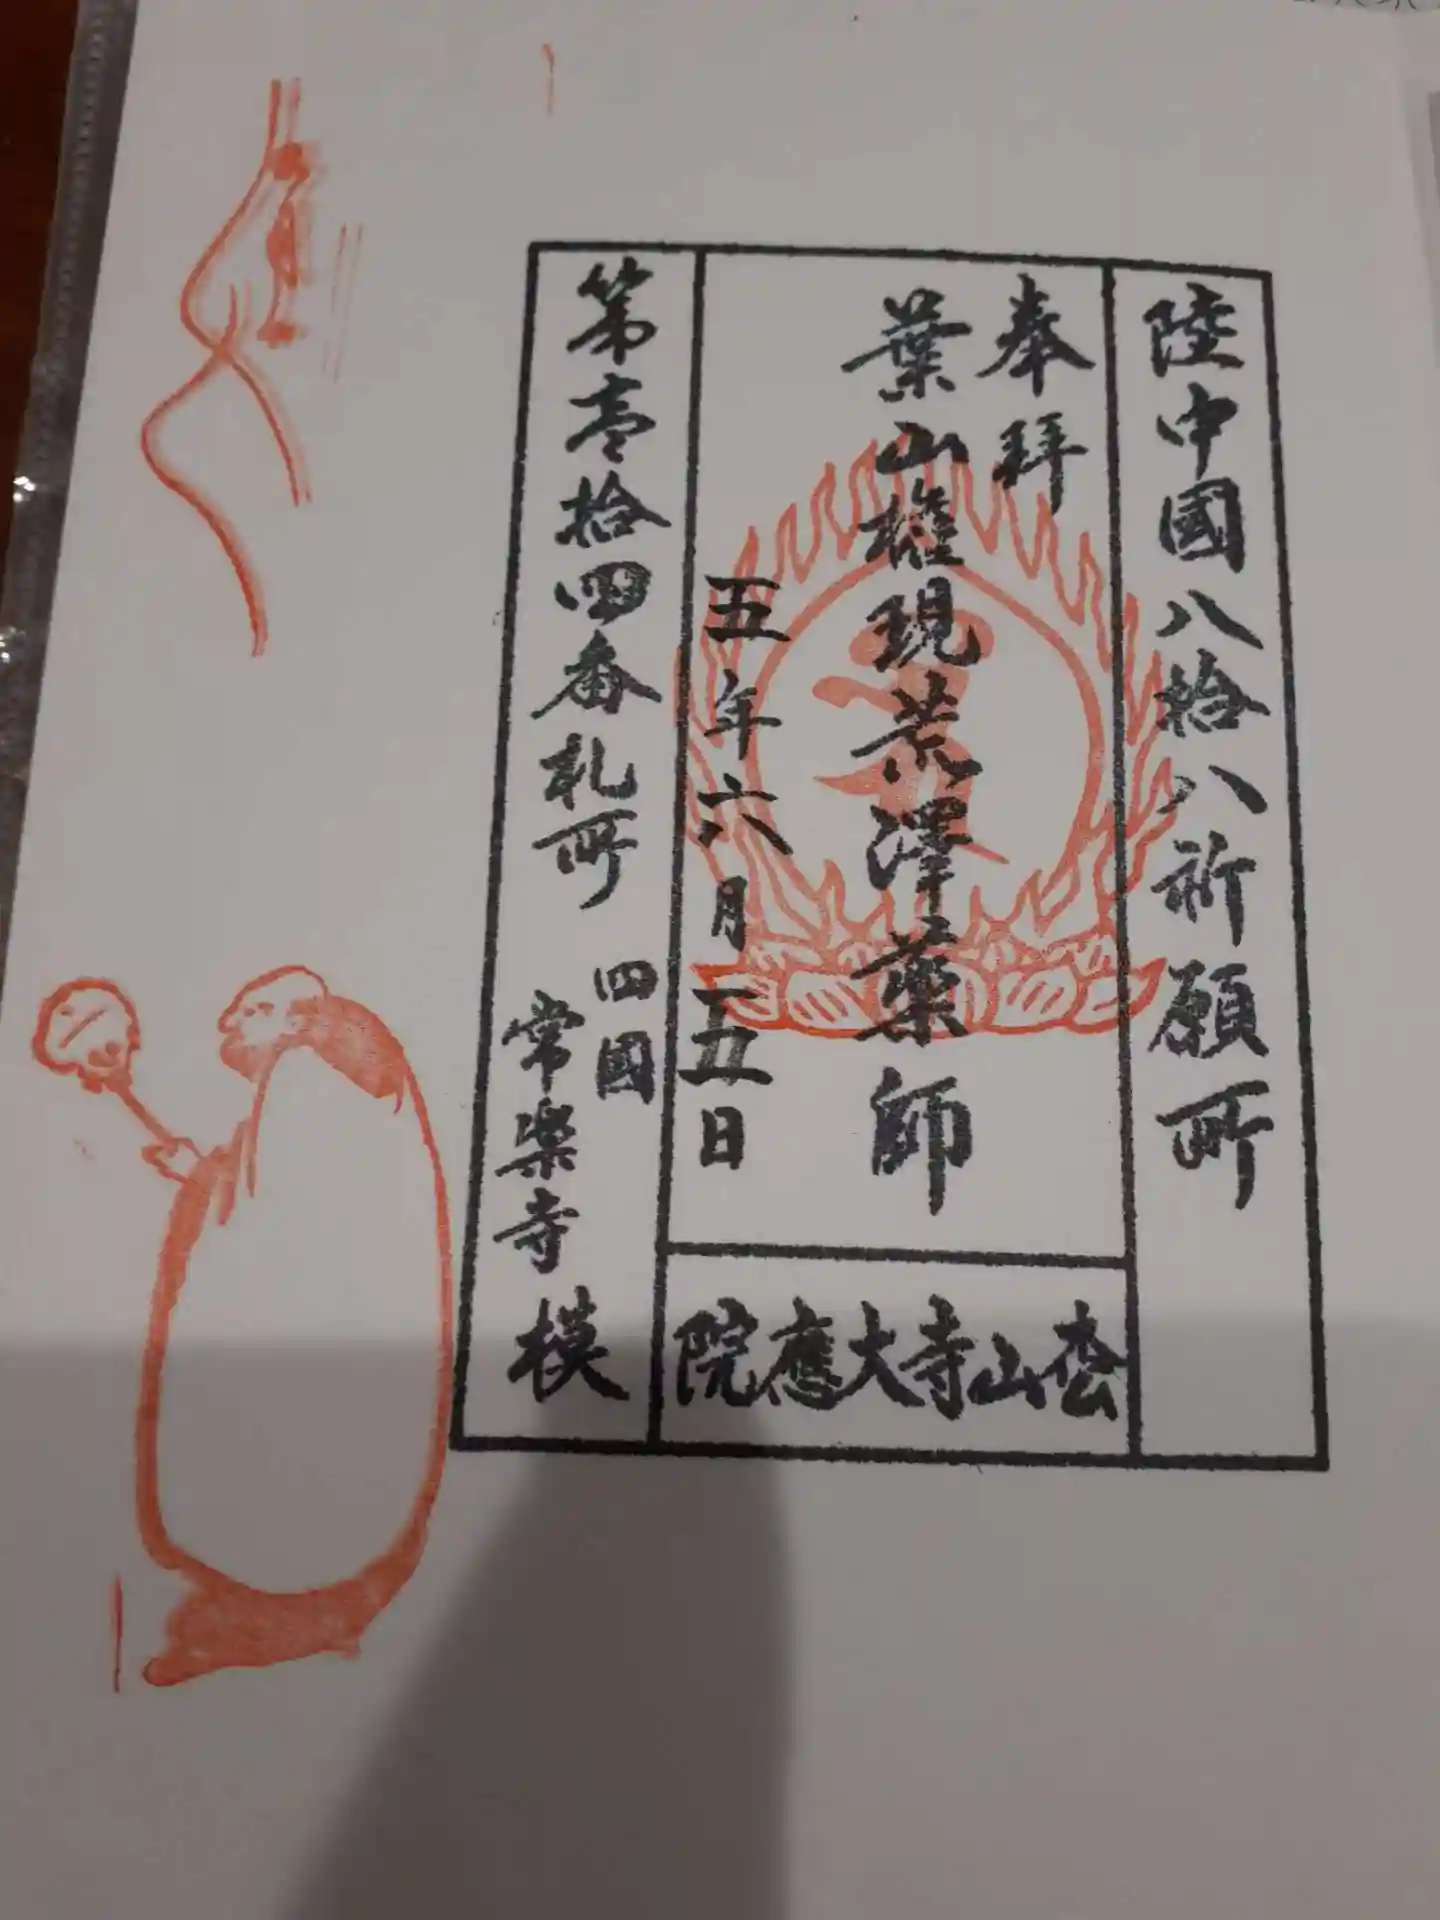 陸中國八拾八祈願所
奉拜
葉山権現荒澤薬師
五年六月五日
第壱拾四番札所
四國
常楽寺
模
院應大寺山